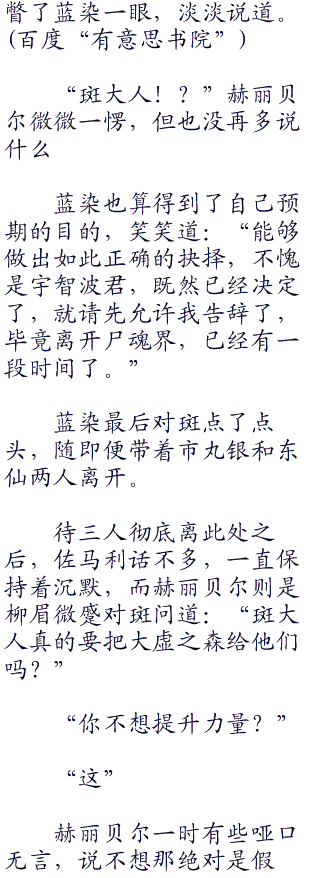 瞥了蓝染一眼，淡淡说道。
(百度“有意思书院”)
“斑大人！？”赫丽贝
尔微微一愣，但也没再多说
什么
蓝染也算得到了自己预
期的目的，笑笑道：“能够
做出如此正确的抉择，不愧
是宇智波君，既然已经决定
了，就请先允许我告辞了，
毕竟离开尸魂界，已经有一
段时间了。”
蓝染最后对斑点了点
头，随即便带着市丸银和东
仙两人离开。
待三人彻底离此处之
后，佐马利话不多，一直保
持着沉默，而赫丽贝尔则是
柳眉微蹙对斑问道：“斑大
人真的要把大虚之森给他们
吗？”
“你不想提升力量？”
“这”
赫丽贝尔一时有些哑口
无言，说不想那绝对是假